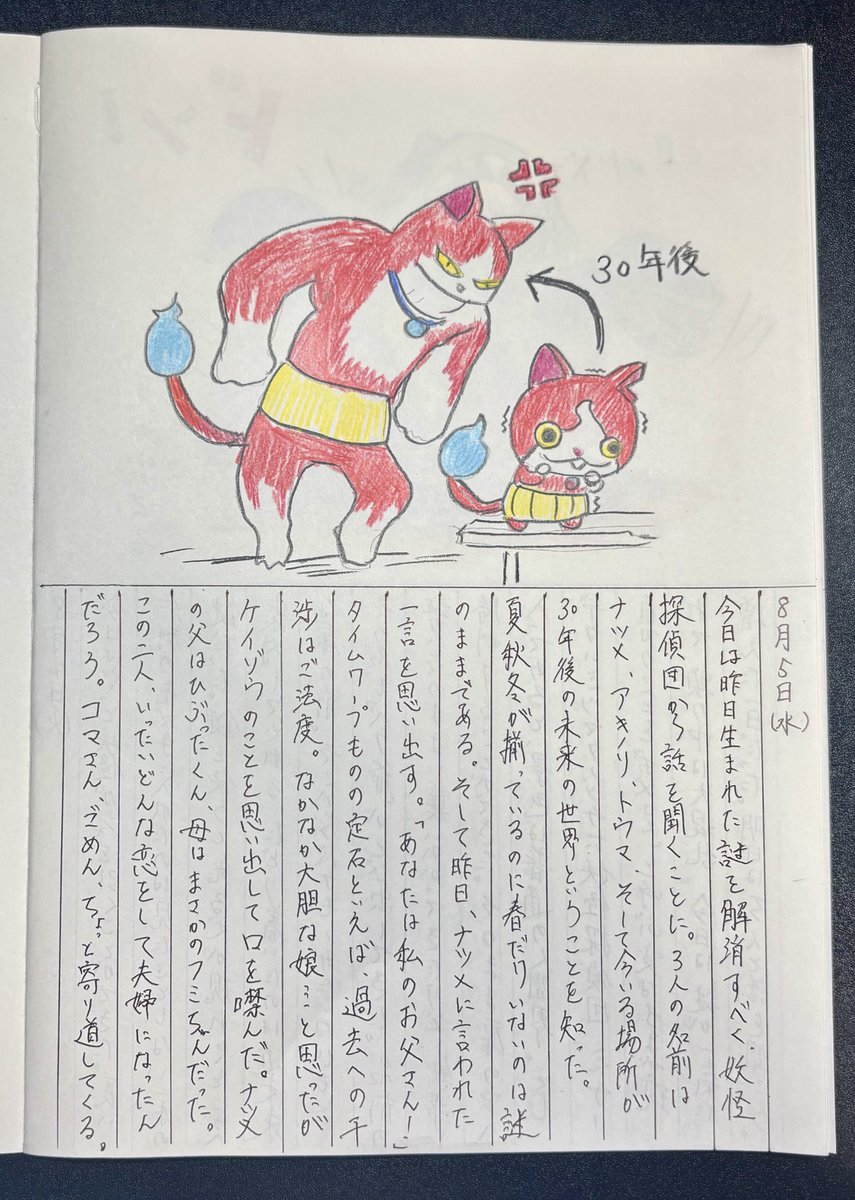 30年後
8月5日(水)
今日は昨日生まれた謎を解消すべく、妖怪
探偵団から話を聞くことに。3人の名前は
ナツメ、アキノリ、トウマ、そして今いる場所が
30年後の未来の世界ということを知った。
夏秋冬が揃っているのに春だけいないのは謎
のままである。そして昨日、ナツメに言われた
一言を思い出す。「あなたは私のお父さん!」
タイムワープものの定石といえば、過去への干
渉はご法度。なかなか大胆な娘…と思ったが
ケイゾウのことを思い出して口を噤んだ。ナツメ
の父はひぶったくん、母はまさかのフミちゃんだった。
この二人、いったいどんな恋をして夫婦になったん
だろう。コマさん、ごめん、ちょっと寄り道してくる。